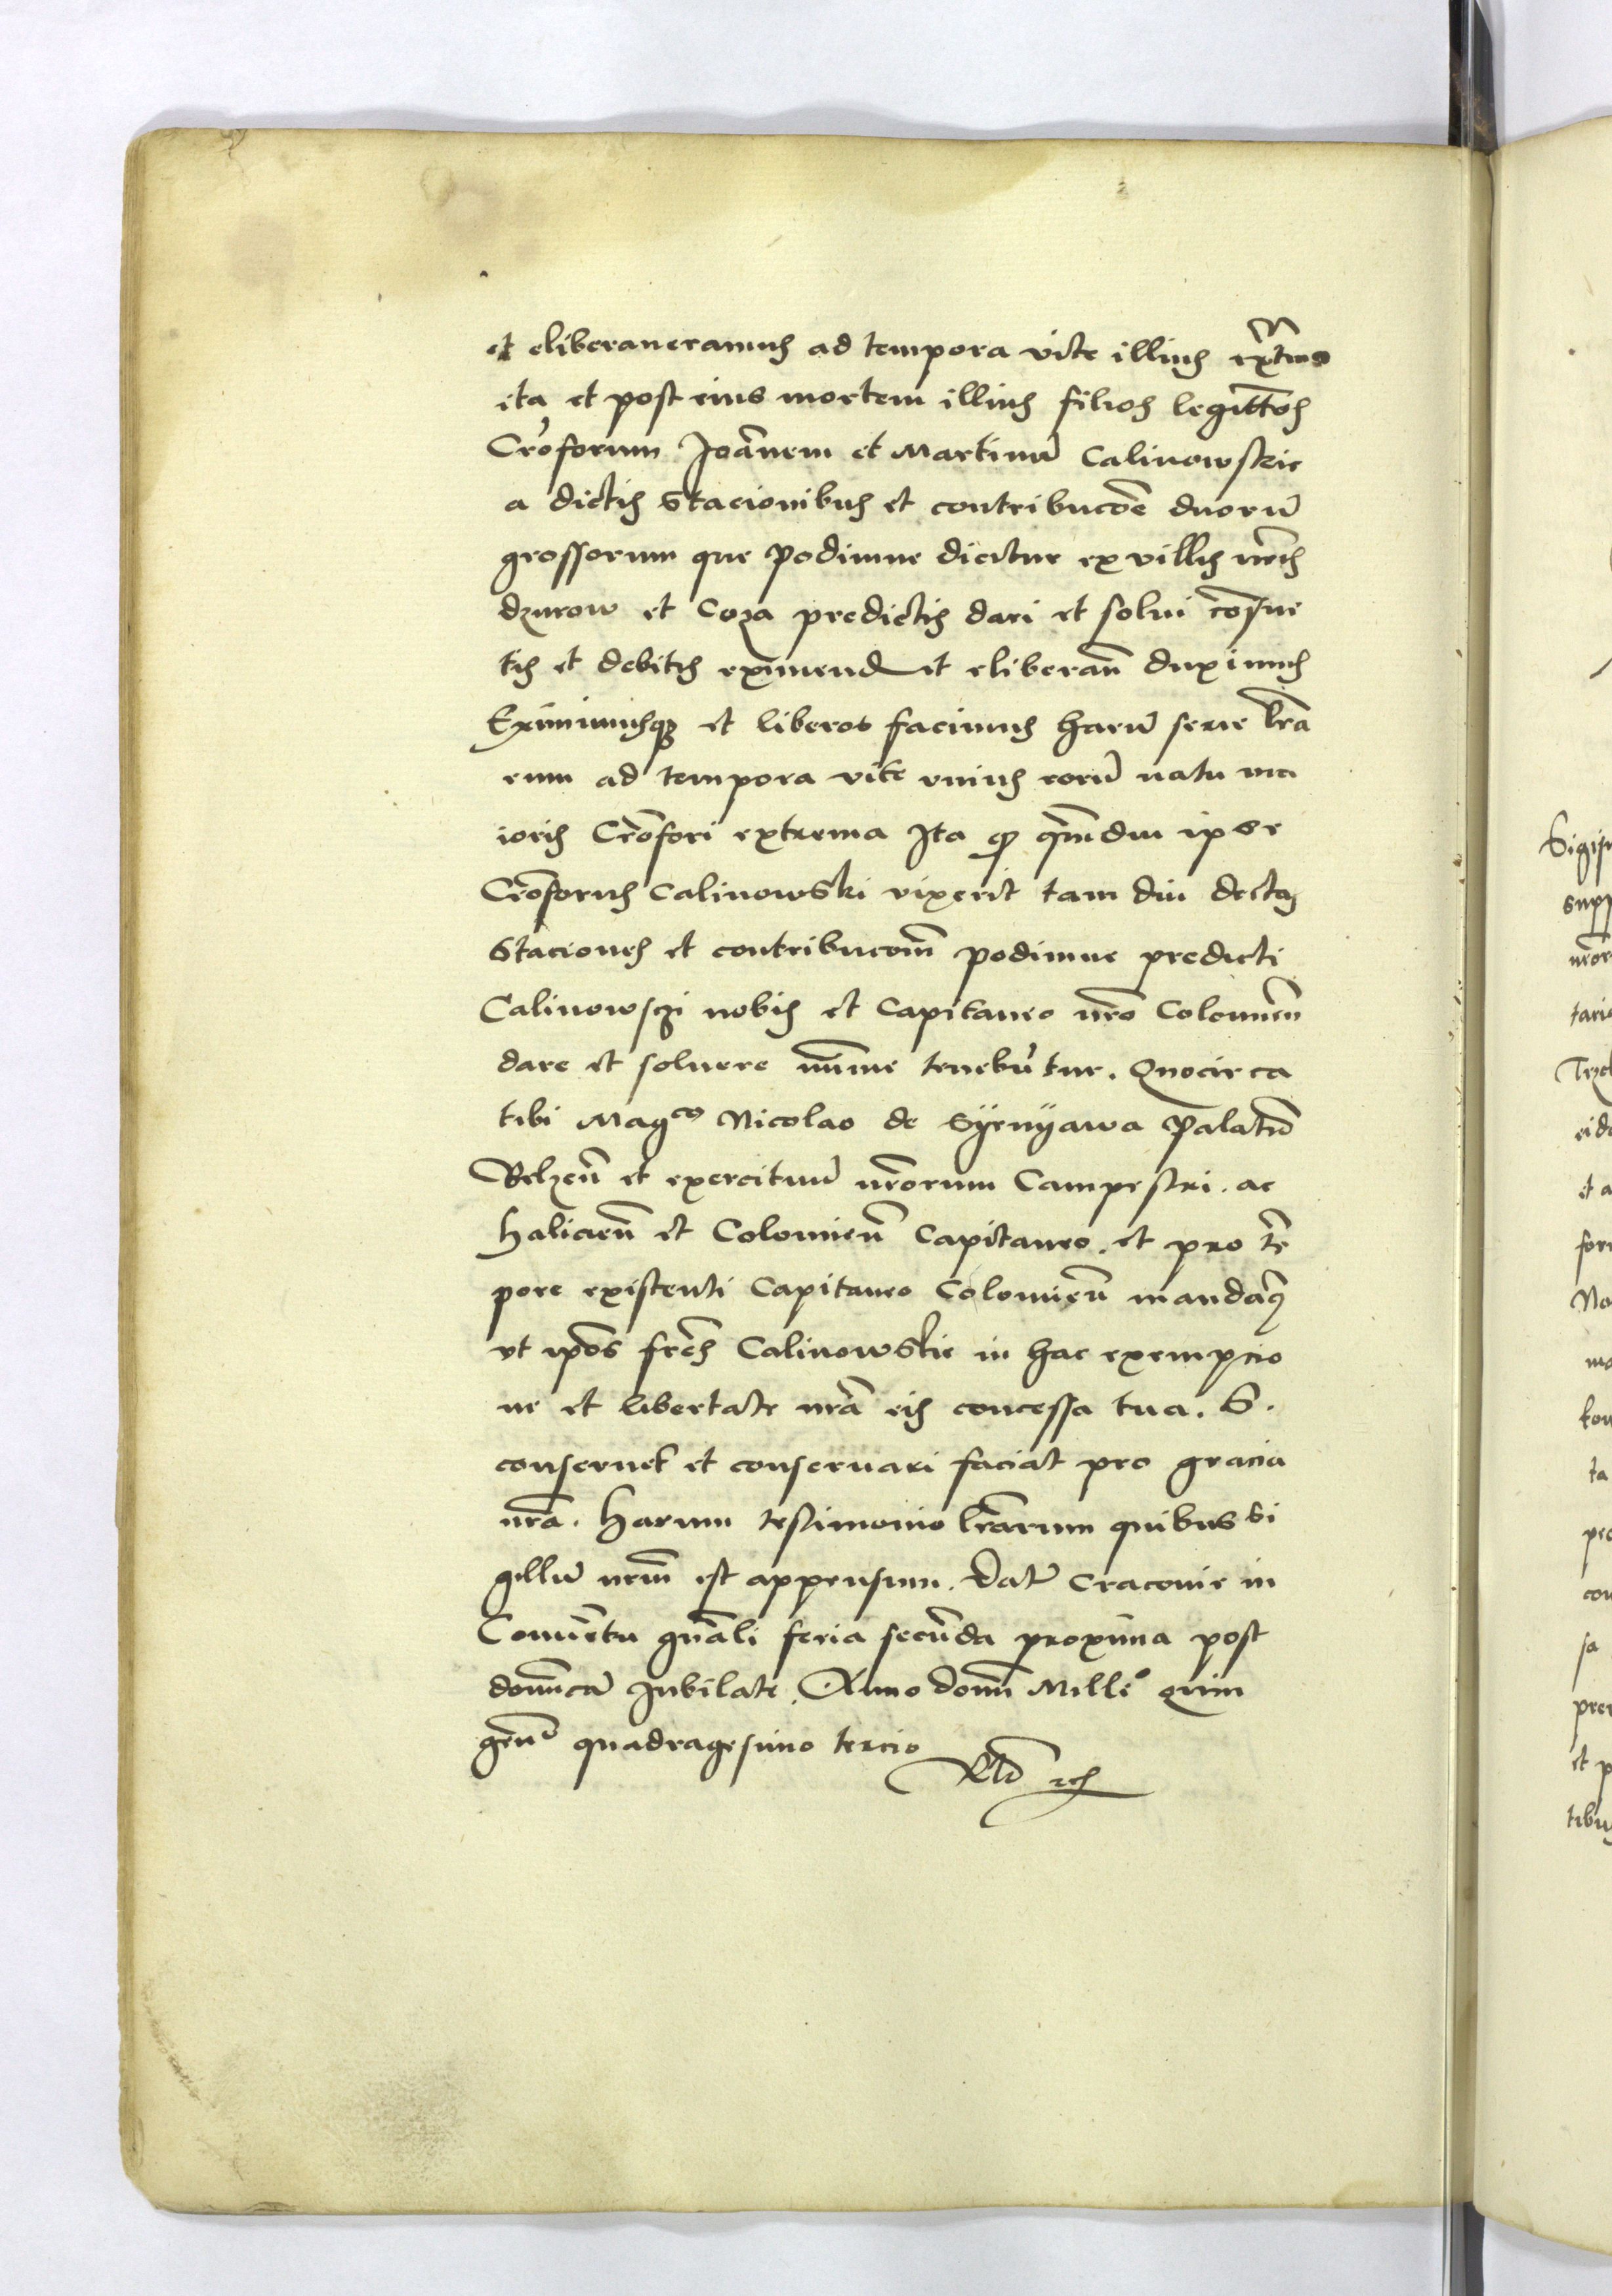 et eliberaueramus ad tempora vite illius extrema
ita et post eius mortem illius filios legittos
Crōforum Joānem et Martinū Calinowskie
a dictis Stacionibus et contribucōe duorū
grossorum que Podimne dicitur ex villis nrīs
dzurow et Coza predictis dari et solui cōsue
tis et debitis eximend et eliberan̄ duximus
Eximimusq3 et liberos facimus harū serie lrā
rum ad tempora vite vnius eorū natu ma
ioris Crōfori extrema Ita q3 qm̄diu ipse
Crōforus Calinowski vixerit tam diu dictas
Staciones et contribucōm̄ podimne predicti
Calinowsczi nobis et Capitaneo nrō Colomien̄
dare et soluere mīme tenebūtur. Quocirca
tibi Magco Nicolao de Syenyawa Palatīo
Belzen̄ et exercituū nrōrum Campestri. ac
halicien̄ et Colomien̄ Capitaneo. et pro tē
pore existenti Capitaneo Colomien̄ mandam9
vt ipōs frēs Calinowskie in hac exempcio
ne et libertate nrā eis concessa tua. S.
conseruet et conseruari faciat pro gracia
nrā. Harum testimonio lrārum quibus si
gillū nrm̄ est appensum. Datū Cracouie in
Conuētu gnāli feria secūda proxima post
domīcā Jubilate. Anno domī Millio quin
gen̄o quadragesimo tercio